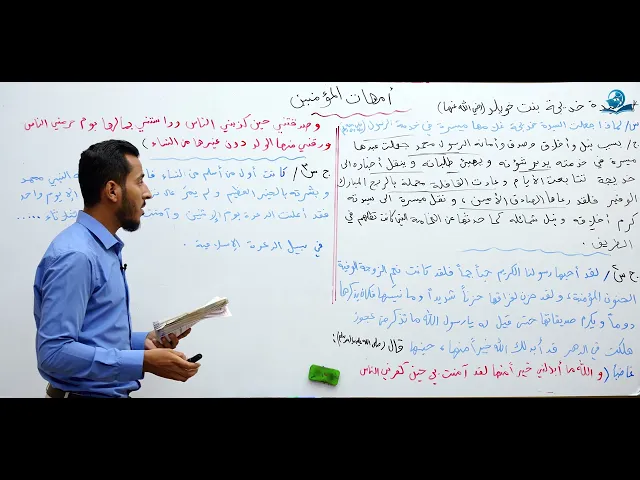 أمهات المؤمنين
خديجة بنت خويلد (رضي الله عنها)
س/ لماذا جعلت السيدة خديجة غلامها ميسرة في خدمة الرسول
ج/ بسبب نبل وأخلاق وصدق وأمانة الرسول محمد جعلت عبدها
ميسرة في خدمته يدير شؤونه ويهيئ طلباته وينقل أخباره الى
خديجة تتابعت الأيام وعادت القافلة محملة بالربح المبارك
الوفير فلقد رعاها الصادق الأمين، ونقل ميسرة الى سيدته
كرم أخلاقه ونبل شمائله كما حدثها عن الغمامة التي كانت تظلهم في
الطريق.
ج س/ لقد أحبها رسولنا الكريم حباً جماً فلقد كانت نعم الزوجة الوفية
الحنون المؤمنة، ولقد حزن لفراقها حزناً شديداً وما نسيها فكان يذكرها
دوماً ويكرم صديقاتها حتى قيل له يا رسول الله ما تذكر من عجوز
هلكت في الدهر قد أبدلك الله خير أمنها، حينها قال
غاضباً (والله ما أبدلني خير أمنها لقد آمنت بي حين كفر في الناس
وصدقتني حين كذبني الناس وواستني بمالها يوم حرمني الناس
ورزقني منها الولد دون غيرها من النساء)
ج س٣/ كانت أول من أسلم من النساء
وبشرته بالخير العظيم ولم يمر
فقد أعلنت الدعوة يوم الإثنين وآمنت
في سبيل الدعوة الإسلامية.